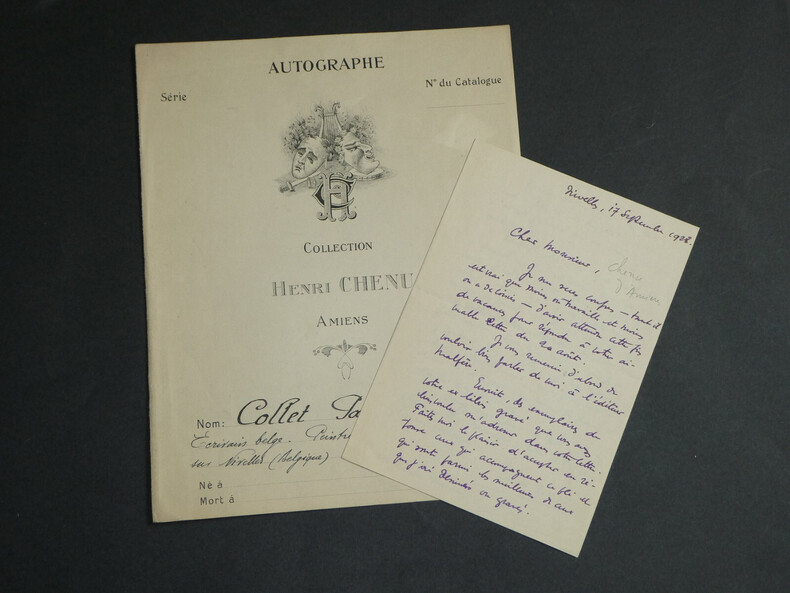 AUTOGRAPHE
Série
N° du Catalogue
HC
COLLECTION
HENRI CHENU
AMIENS
Nom: Collet Pa
Ecrivain belge. Peintre
sus Nivelles (Belgique)
Né à
Mort à
Nivelles, 17 Septembre 1928
Cher Monsieur,
Chenu
d'Amiens
Je suis confus — tant il
est vrai que moins on travaille et moins
on a de loisirs — d'avoir attendu cette fin
de vacances pour répondre à votre ai-
mable lettre du 20 août.
Je vous remercie d'abord de
vouloir bien parler de moi à l'éditeur
Malfère.
Ensuite, des exemplaires de
votre ex-libris gravé que vous avez
bien voulu m'adresser dans votre lettre.
Faites moi le plaisir d'accepter en ré-
ponse ceux qui accompagnent ce pli et
qui sont parmi les meilleurs de ceux
que j'ai dessinés ou gravés.